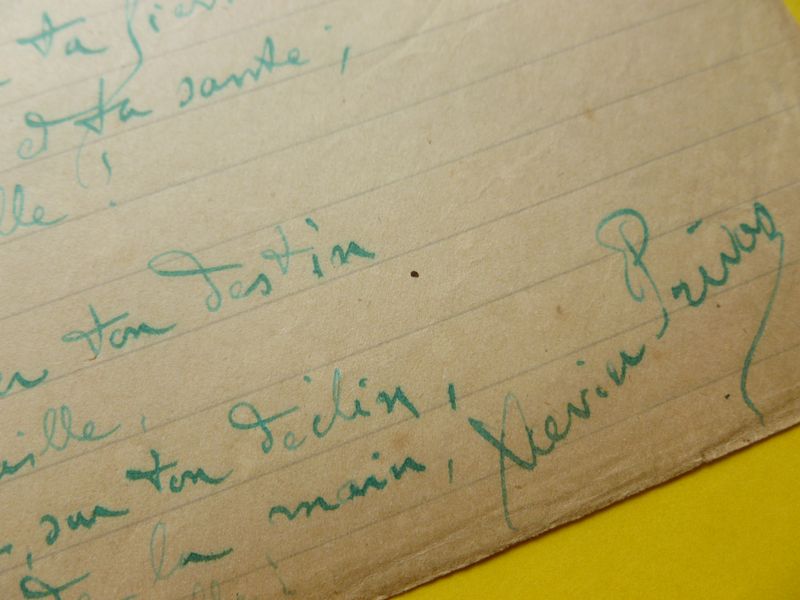 ta
et ta santé,
lle !
ton destin
ille,
, sur ton déclin,
de la main,
Xavier Privas